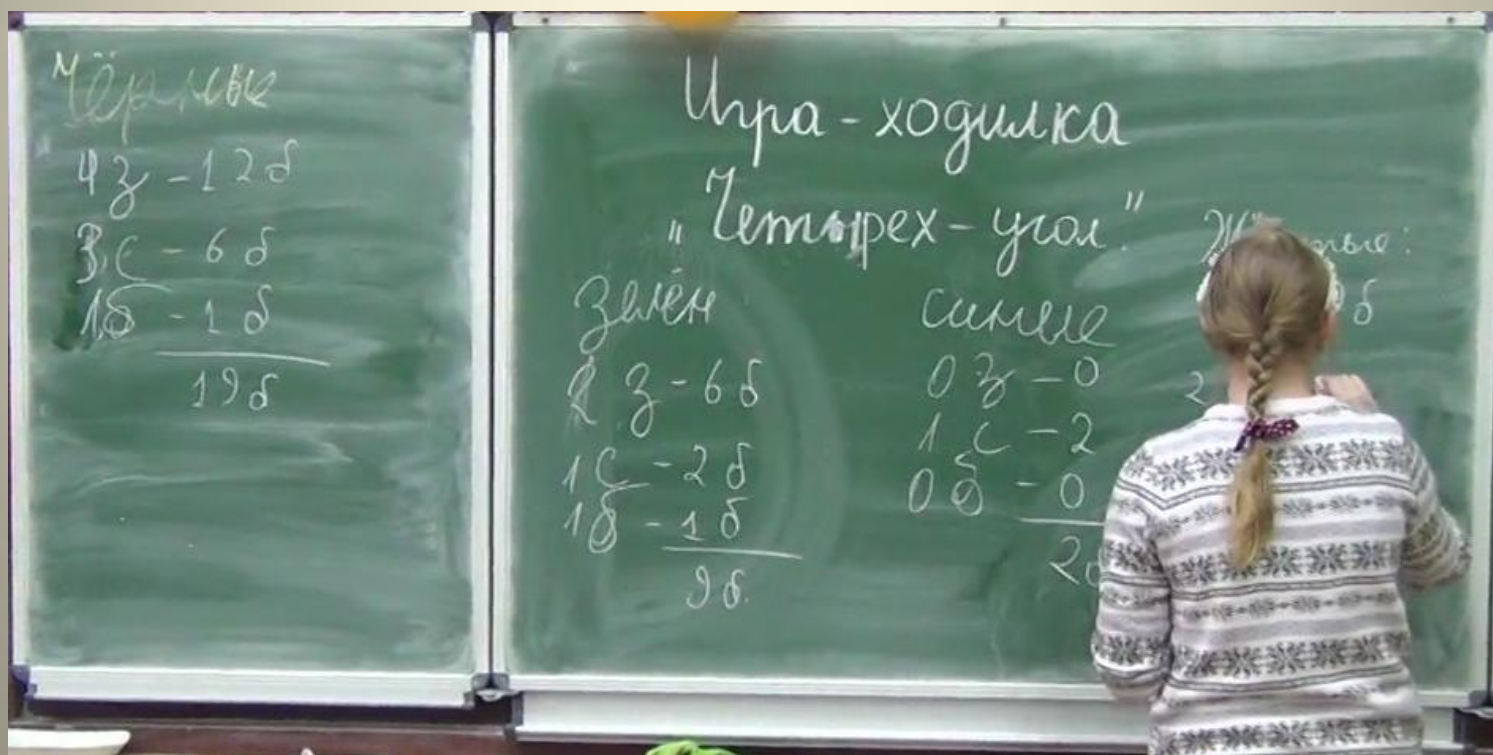 Чёрные
4з - 12б
3с - 6б
1б - 1б
19б
Игра - ходилка
"Четырех - угол."
зелён
2 з - 6б
1с - 2б
1б - 1б
9б.
синие
0з - 0
1с - 2
0б - 0
2б
б
2